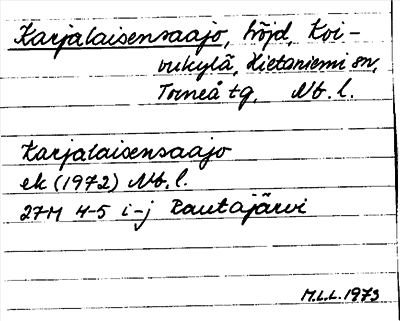 Karjalaisensaajo, höjd, Koi-
vukylä, Hietaniemi sn,
Torneå tg, Nb. l.
Karjalaisensaajo
ek (1972) Nb. l.
27M 4-5 i-j Rautajärvi
M.L.L. 1973